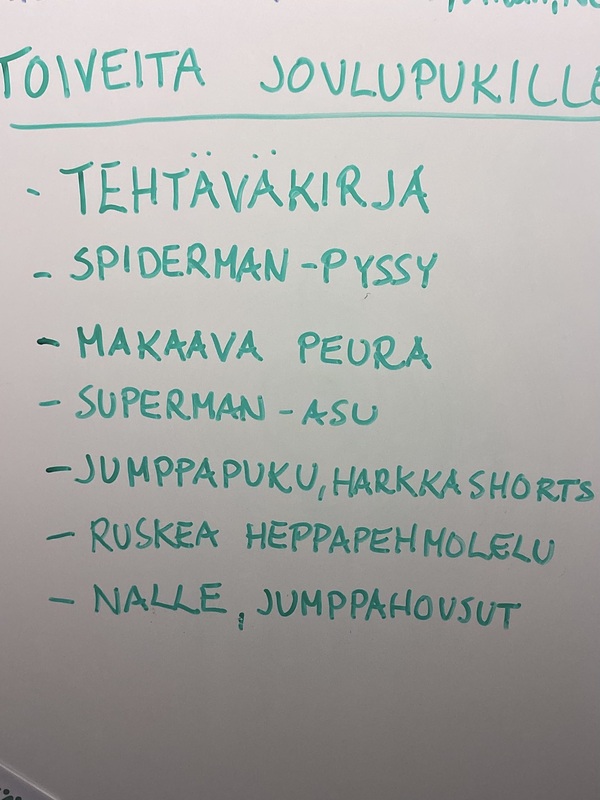 TOIVEITA JOULUPUKILLE
- TEHTÄVÄKIRJA
- SPIDERMAN-PYSSY
- MAKAAVA PEURA
- SUPERMAN-ASU
- JUMPPAPUKU, HARKKASHORTS
- RUSKEA HEPPAPEHMOLELU
- NALLE, JUMPPAHOUSUT